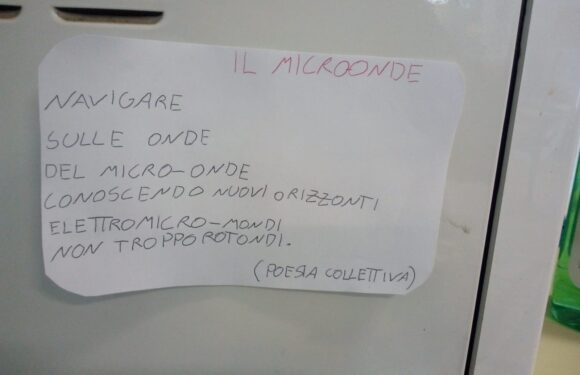 IL MICROONDE
NAVIGARE
SULLE ONDE
DEL MICRO-ONDE
CONOSCENDO NUOVI ORIZZONTI
ELETTROMICRO-MONDI
NON TROPPO ROTONDI.
(POESIA COLLETTIVA)